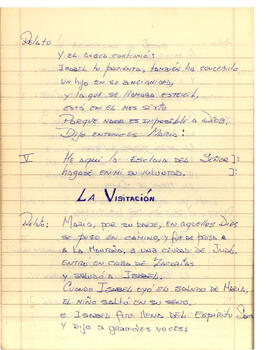 Relato
Y el angel continuó:
Isabel tu parienta, también ha concebido
un hijo en su ancianidad,
y la que se llamaba esteril,
está en el mes sexto
Porque nada es imposible a Dios.
Dijo entonces Maria:
V He aquí la Esclava del Señor
hagase en mi su voluntad.
LA VISITACIÓN
Relato: Maria, por su parte, en aquellos Dias
se puso en camino, y fue de prisa
a la Montaña, a una ciudad de Judá.
Entró en casa de Zacarias
y saludó a Isabel.
Cuando Isabel oyó el saludo de Maria,
el niño saltó en su seno,
e Isabel fue llena del Espiritu
Y dijo a grandes voces: